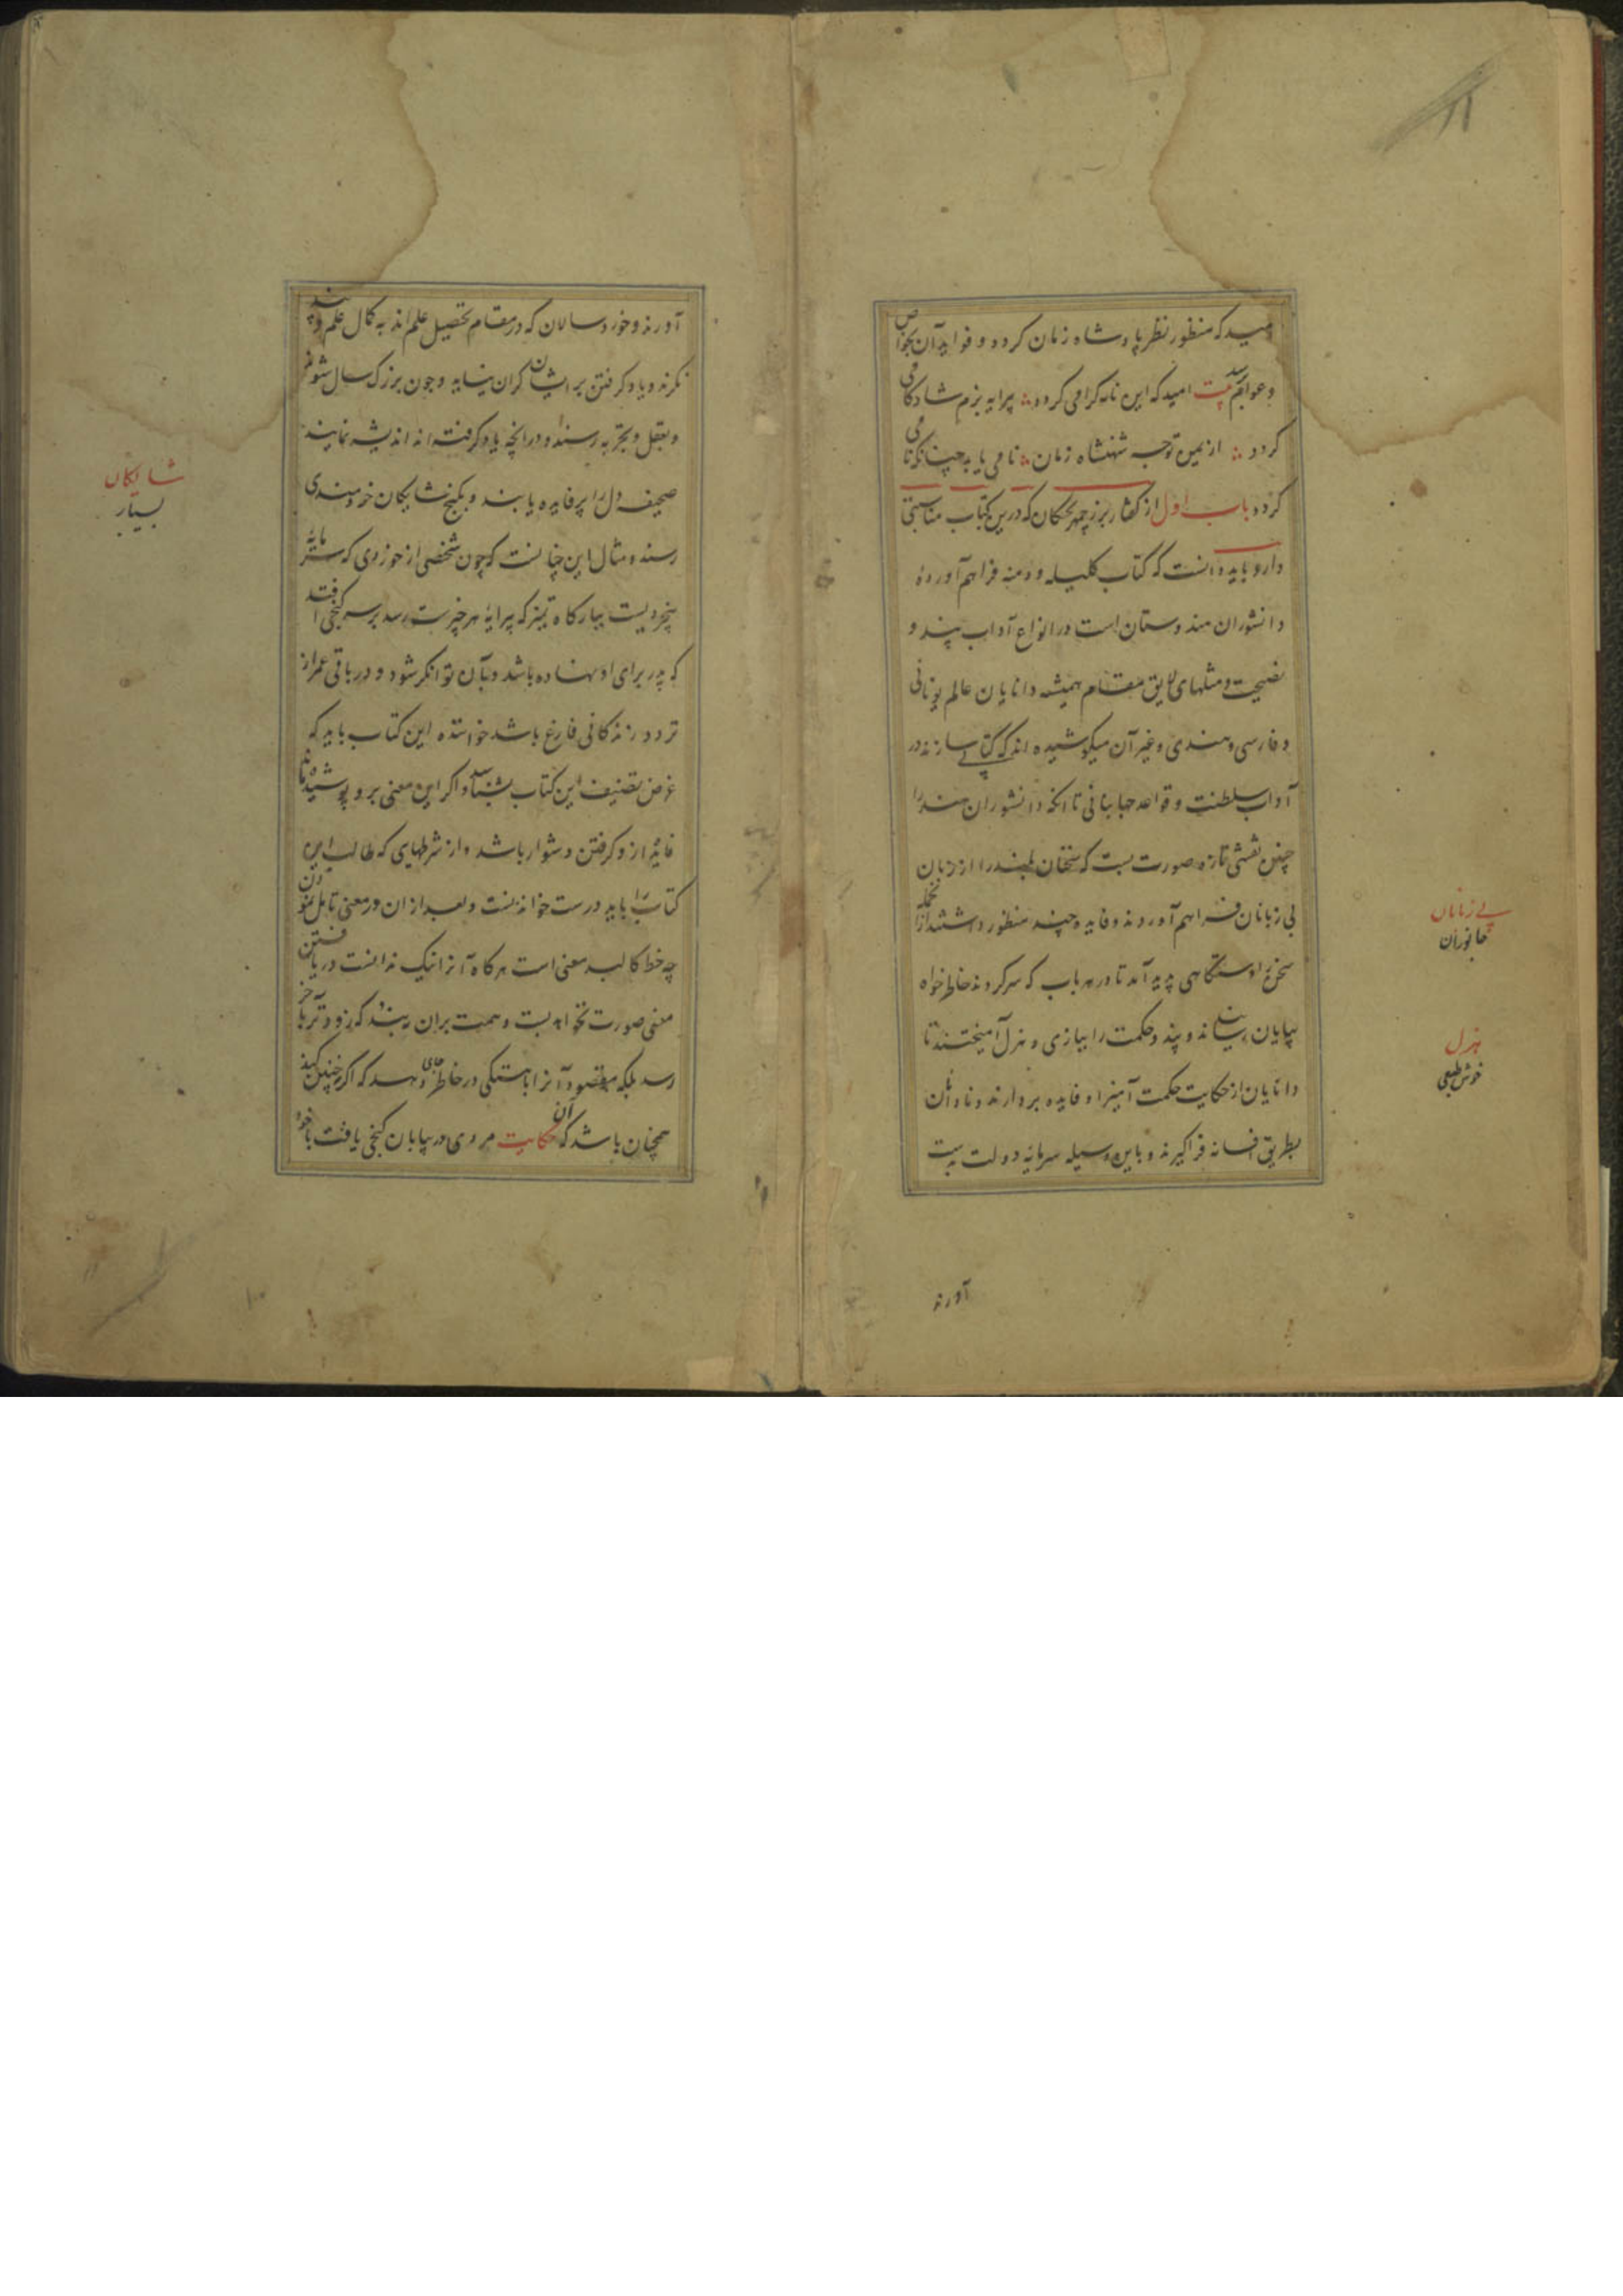 امید که منظور نظر پادشاه زمان کردد و فواید آن بخواص
و عوام رسد بیت امید که این نامه کرامی کردد پیرایه بزم شادکامی
کردد از یمن توجه شهنشاه زمان نامی یابد چنانکه نامی
کردد باب اول از کفتار بزرچمهر بختکان که درین کتاب مناسبتی
دارد باید دانست که کتاب کلیله و دمنه فراهم آوردهٔ
دانشوران هندوستان است در انواع آداب پند و
نصیحت و مثلهای لایق مقام همیشه دانایان عالم یونانی
و فارسی و هندی و غیر آن میکوشیده اند که کتابی سازند در
آداب سلطنت و قواعد جهانبانی تا آنکه دانشوران هند را
چنین نقشی تازه صورت بست که سخنان بلند را از زبان
بی زبانان فراهم آوردند و فایده چند منظور داشتند از آنجمله
سخن را دستکاهی پدید آمد تا در هر باب که سر کردند خاطر خواه
بپایان رسانند و پند و حکمت را ببازی و هزل آمیختند تا
دانایان از حکایت حکمت آمیز او فایده بردارند و نادانان
بطریق افسانه فراکیرند و باین وسیله سرمایه دولت بدست
بی زبانان
جانوران
هزل
خوش طبعی
آورند
آورند و خورد سالان که در مقام تحصیل علم اند به کمال علم و پند
نکرند و یاد کرفتن بر ایشان کران نیاید و چون بزرک سال شوند
و بعقل و تجربه رسند و در انچه یاد کرفته اند اندیشه نمایند
صحیفه دل را پر فایده یابند و بکنج شایکان خردمندی
رسند و مثال این چنانست که چون شخصی از خوردی که سرمایهٔ
بیخردیست ببارکاه تمیز که پیرایهٔ هر چیزست رسد بر سر کنجی افتد
که پدر برای او نهاده باشد و بآن توانکر شود و در باقی عمر از
تردد زندکانی فارغ باشد خوانندهٔ این کتاب باید که
غرض تصنیف این کتاب بشناسد و اکر این معنی برو پوشیده ماند
فایده ازو کرفتن دشوار باشد و از شرطهایی که طالب این
کتاب را باید درست خواندنست و بعد از ان در معنی تامل نمودن
چه خط کالبد معنی است هرکاه آنرا نیک ندانست دریافتن
معنی صورت نخواهد بست و همت بران نبندد که زودتر بآخر
رسد بلکه مقصود آنرا باهستکی در خاطر جای دهد که اکر چنین نکند
همچنان باشد که آن حکایت مردی در بیابان کنجی یافت باخود
شایکان
بسیار